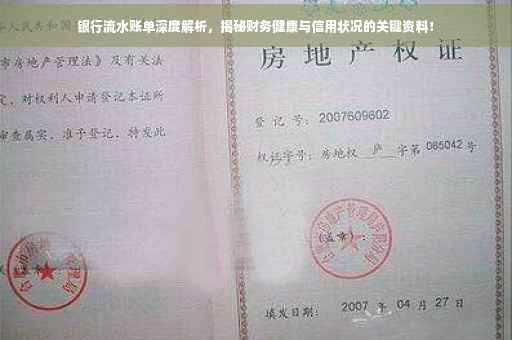 银行流水账单深度解析，揭秘财务健康与信用状况的关键资料！
人民共和国
市房地产管理法》及有关
定，对权利人申请登记本证所
审查属实，准予登记，特发此
房地产权
登 记 号：2007609602
权证字号：房地权 庐 字第 085042 号
（盖章）：
填发日期： 2007 年 04 月 27 日